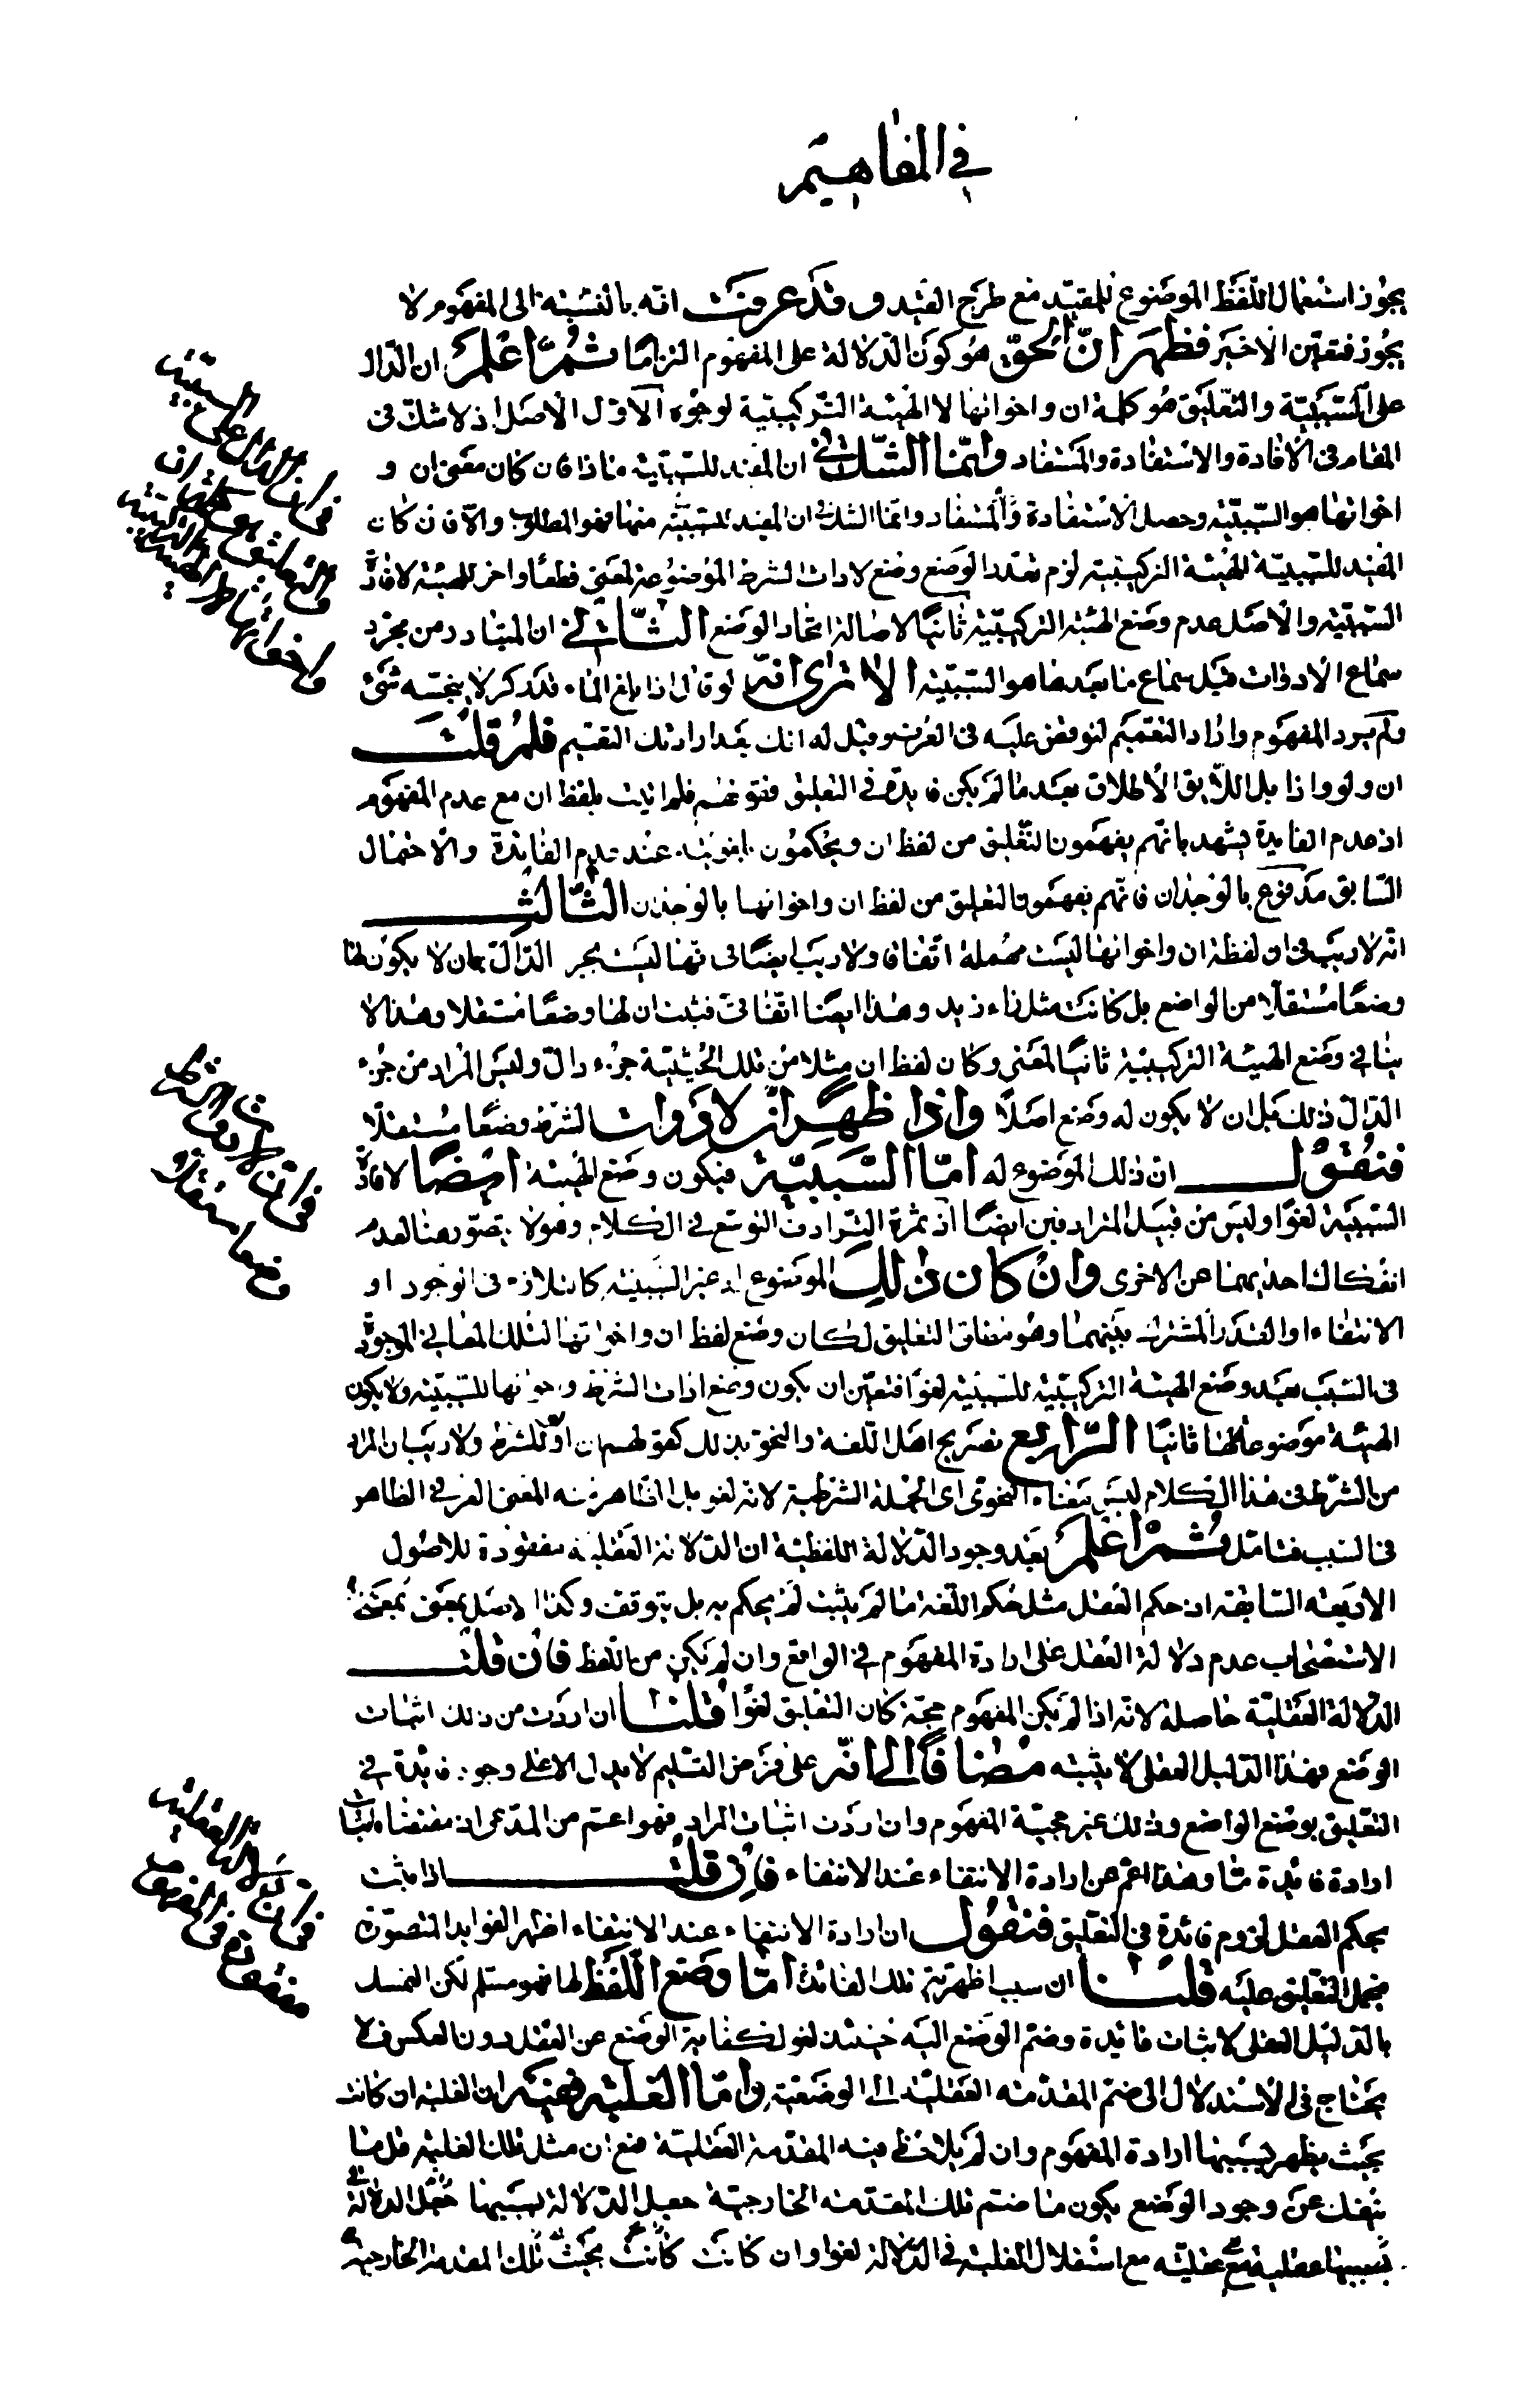 في المفاهيم
يجوز استعمال اللفظ الموضوع للمقيد مع طرح القيد وقد عرفت انه بالنسبة الى المفهوم لا
يجوز فتعين الاخير فظهر ان الحق هو كون الدلالة على المفهوم التزاما ثم اعلم ان الدال
على السببية والتعليق هو كلمة ان واخواتها لا الهيئة التركيبية لوجوه الاول الاصل اذ لا شك في
المقام في الافادة والاستفادة والمستفاد وانما الشك في ان المفيد للسببية ماذا فان كان معنى ان و
اخواتها هو السببية وحصل الاستفادة والمستفاد وانما الشك في ان المفيد للسببية منها فهو المطلوب والا فان كان
المفيد للسببية الهيئة التركيبية لزم تعدد الوضع وضع لادات الشرط الموضوعة لمعنى قطعا واخر للهيئة لافادة
السببية والاصل عدم وضع الهيئة التركيبية ثانيا لاصالة اتحاد الوضع الثاني ان المتبادر من مجرد
سماع الادوات قبل سماع ما بعدها هو السببية الا ترى انه لو قال اذا بلغ الماء قدر كر لا ينجسه شئ
ولم يرد المفهوم واراد التعميم لتوقض عليه في العرف وقيل له انك بعد ارادتك التعميم فلم قلت
ان ولو واذا بل اللائق الاطلاق بعد ما لم يكن فايدة في التعليق فلم اتيت بلفظ ان مع عدم المفهوم
اذ عدم الفايدة يشهد بانهم يفهمون التعليق من لفظ ان ويحكمون عند عدم الفائدة والاحتمال
السابق مدفوع بالوجدان فانهم يفهمون التعليق من لفظ ان واخواتها بالوجدان الثالث
انه لا ريب في ان لفظة ان واخواتها ليست مهملة اتفاقا ولا ريب ايضا في انها ليست بجزء الدال بان لا يكون لها
وضعا مستقلا من الواضع بل كانت مثل زاء زيد وهذا ايضا اتفاقي فثبت ان لها وضعا مستقلا وهذا لا
ينافي وضع الهيئة التركيبية ثانيا لمعنى وكان لفظ ان مثلا من تلك الحيثية جزء دال وليس المراد من جزء
الدال ذلك بل ان لا يكون له وضع اصلا واذا ظهر ان لادوات الشرط وضعا مستقلا
فنقول ان ذلك الموضوع له اما السببية فيكون وضع الهيئة ايضا لافادة
السببية لغوا وليس من قبيل المترادفين ايضا اذ ثمرة الترادف التوسع في الكلام وهو لا يتصور هنا لعدم
انفكاك احديهما عن الاخرى وان كان ذلك الموضوع له غير السببية كالتلازم في الوجود او
الانتفاء او القدر المشترك بينهما وهو مطلق التعليق لكان وضع لفظ ان واخواتها لتلك المعاني الموجودة
في السبب بعد وضع الهيئة التركيبية للسببية لغوا فتعين ان يكون وضع ادات الشرط واخواتها للسببية ولا يكون
الهيئة موضوعا لها ثانيا الرابع تصريح اهل اللغة والنحو بذلك كقولهم ان او لو للشرط ولا ريب ان المراد
من الشرط في هذا الكلام ليس معناه النحوي اي الجملة الشرطية لانه لغو بل الظاهر منه المعنى العرفي الظاهر
في السبب فتامل ثم اعلم بعد وجود الدلالة اللفظية ان الدلالة العقلية مفقودة للاصول
الاربعة السابقة اذ حكم العقل مثل حكم اللغة ما لم يثبت لم يحكم به بل يتوقف وكذا الاصل بمعنى
الاستصحاب عدم دلالة العقل على ارادة المفهوم في الواقع وان لم يكن من اللفظ فان قلت
الدلالة العقلية حاصلة لانه اذا لم يكن المفهوم حجة كان التعليق لغوا قلنا ان اردت من ذلك اثبات
الوضع فهذا الدليل العقلي لا يثبته مضافا الى انه على فرض التسليم لا يدل الا على وجود فايدة في
التعليق بوضع الواضع وذلك غير حجية المفهوم وان اردت اثبات المراد فهو اعم من المدعى اذ مقتضاه اثبات
ارادة فائدة ما وهذا اعم من ارادة الانتفاء عند الانتفاء فان قلت اذا ثبت
بحكم العقل لزوم فائدة في التعليق فنقول ان ارادة الانتفاء عند الانتفاء اظهر الفوايد المتصورة
فيحمل التعليق عليه قلنا ان سبب اظهرية تلك الفائدة اما وضع اللفظ لها فهو مسلم لكن التمسك
بالدليل العقلي لاثبات فائدة وضم الوضع اليه حينئذ لغو لكفاية الوضع عن العقل دون العكس فلا
يحتاج في الاستدلال الى ضم المقدمة العقلية الى الوضعية واما الغلبة ففيه ان الغلبة ان كانت
بحيث يظهر بسببها ارادة المفهوم وان لم يلاحظ فيه المقدمة العقلية مع ان مثل تلك الغلبة قل ما
ينفك عن وجود الوضع يكون ما ضم تلك المقدمة الخارجية جعل الدلالة بسببها
بسببها عقلية مع استقلال الغلبة في الدلالة لغوا وان كانت بحيث تلك المقدمة الخارجية
في ان الدال على السببية
والتعليق هو كلمة ان
واخواتها لا الهيئة التركيبية
في ان لادوات الشرط
وضعا مستقلا
في ان الدلالة العقلية
مفقودة في المفهوم